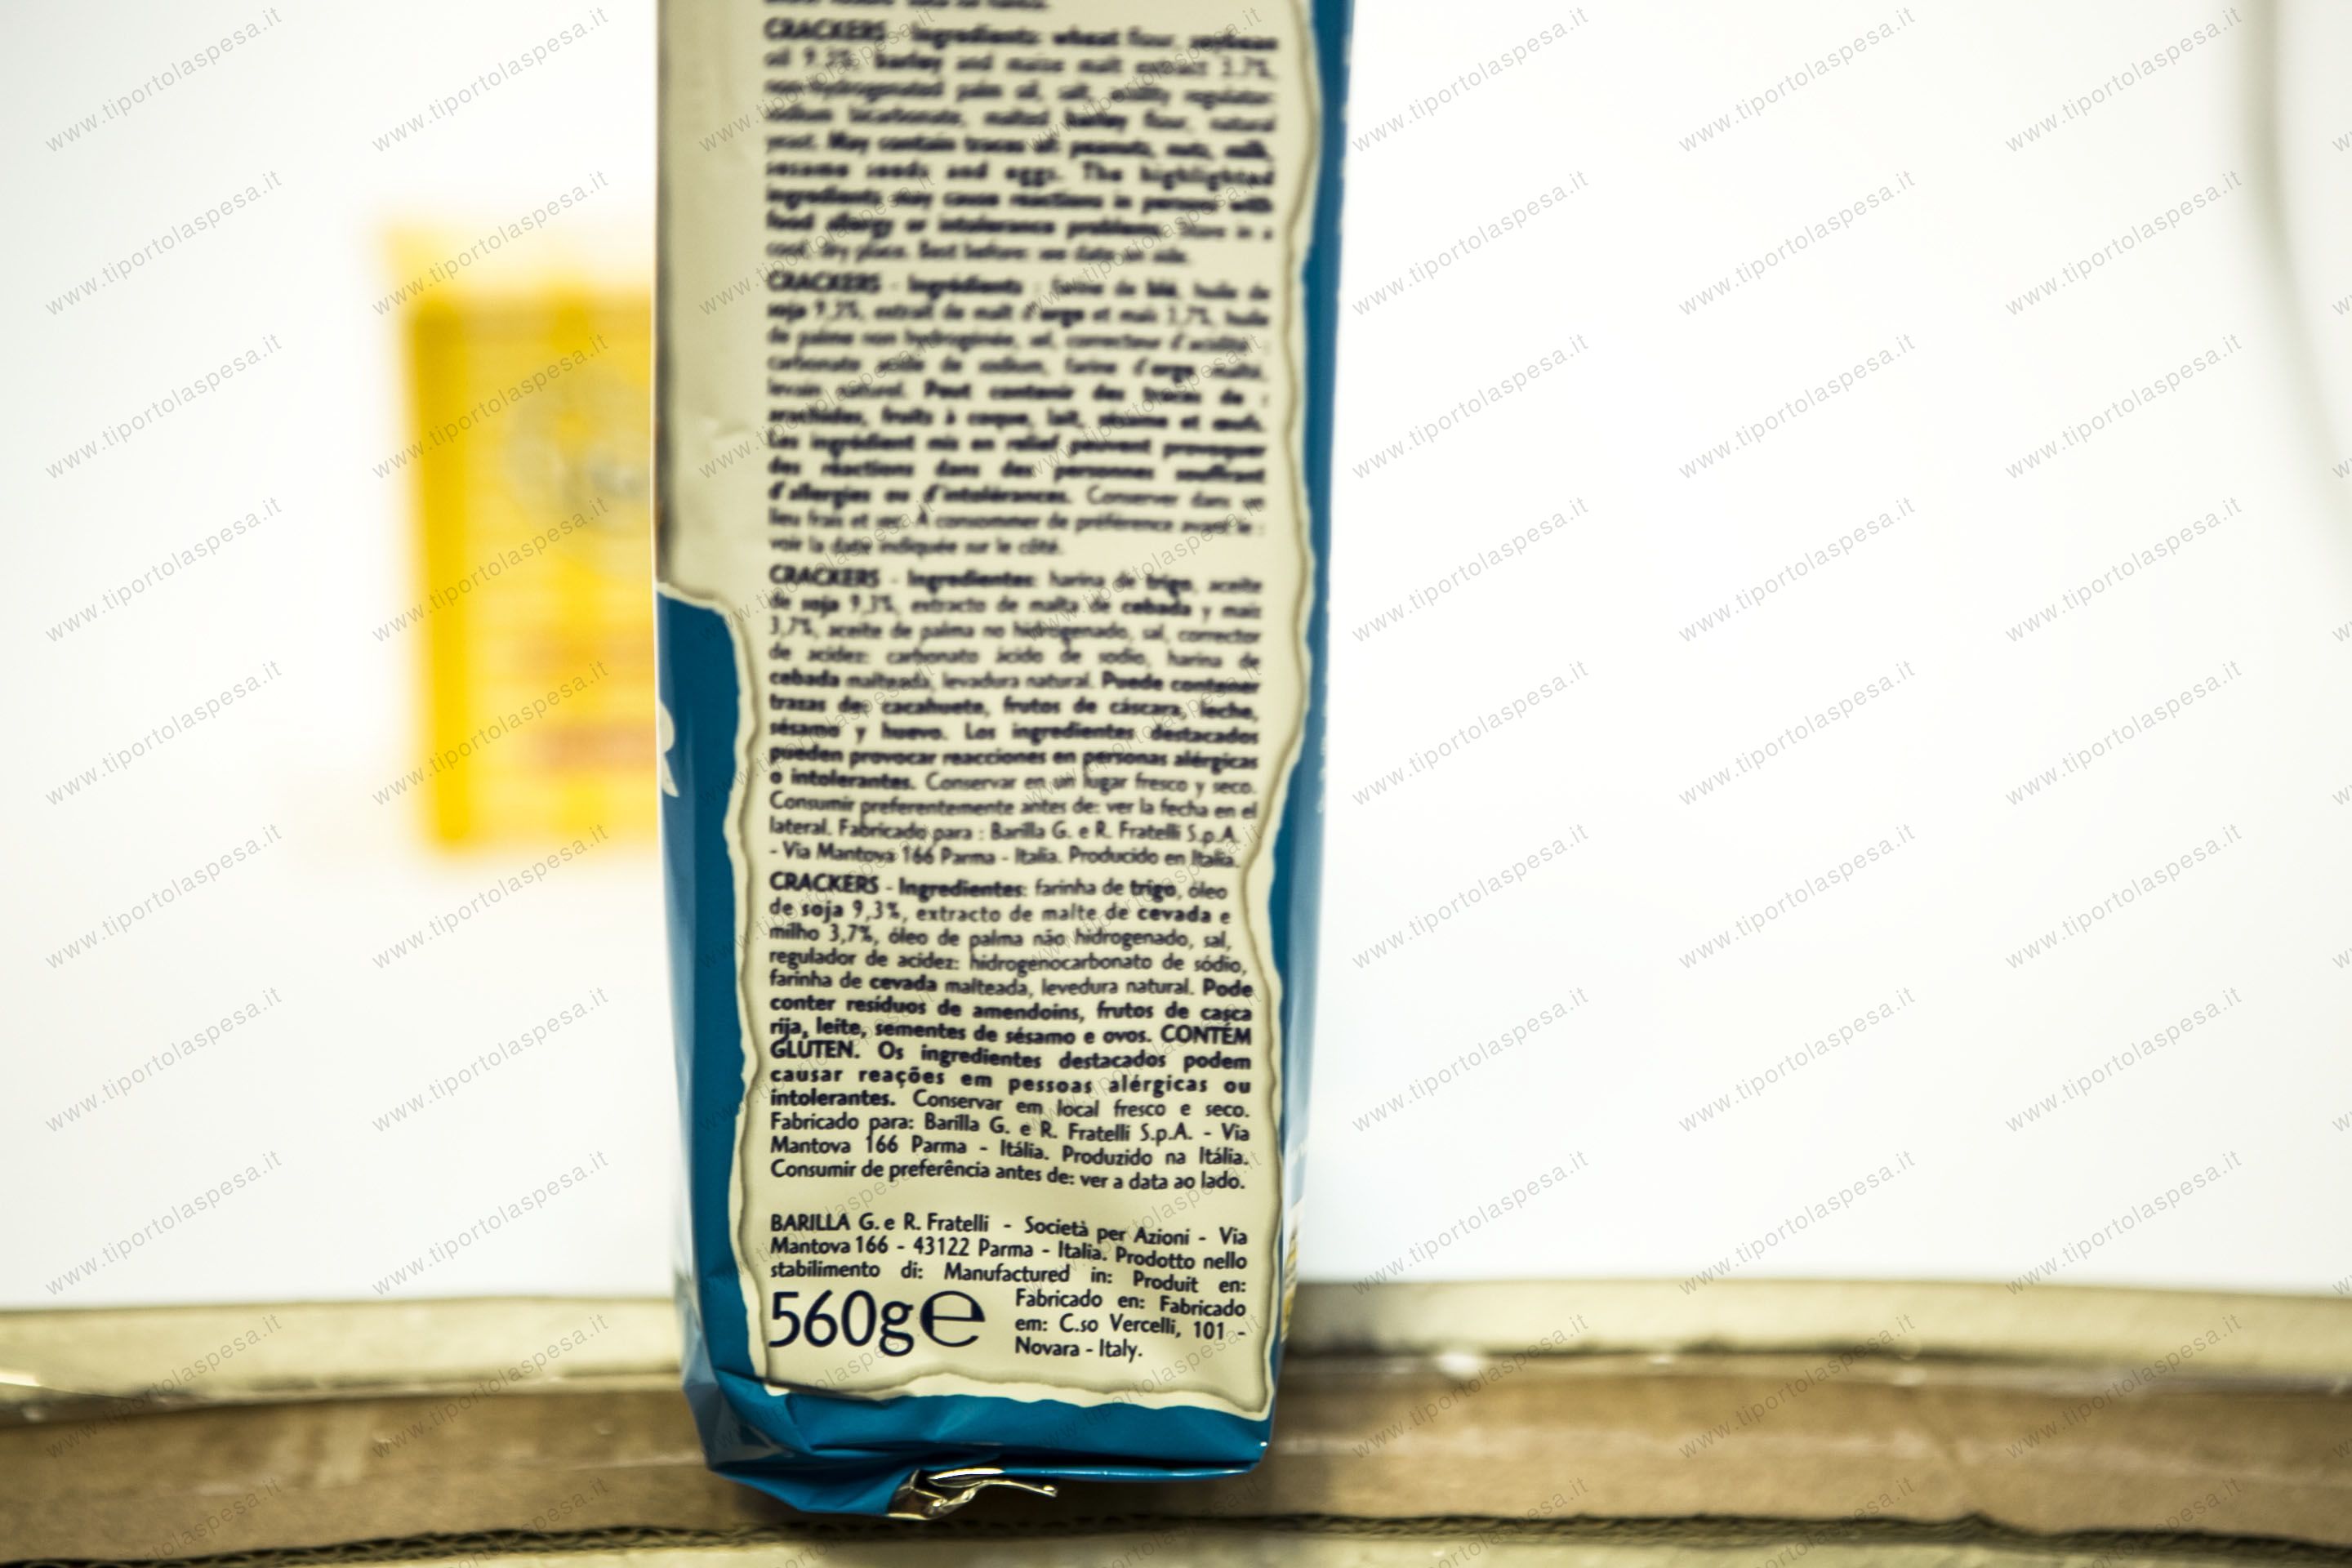 CRACKERS - Ingredients: wheat flour, soybean
oil 9.2%, barley and maize malt extract 3.7%,
non-hydrogenated palm oil, salt, acidity regulator:
sodium bicarbonate, malted barley flour, natural
yeast. May contain traces of: peanuts, nuts, milk,
sesame seeds and eggs. The highlighted
ingredients may cause reactions in persons with
food allergy or intolerance problems. Store in a
cool, dry place. Best before: see date on side.
CRACKERS - Ingrédients : farine de blé, huile de
soja 9,2%, extrait de malt d'orge et maïs 3,7%, huile
de palme non hydrogénée, sel, correcteur d'acidité :
carbonate acide de sodium, farine d'orge maltée,
levain naturel. Peut contenir des traces de :
arachides, fruits à coque, lait, sésame et œufs.
Les ingrédient mis en relief peuvent provoquer
des réactions dans des personnes souffrant
d'allergies ou d'intolérances. Conserver dans un
lieu frais et sec. A consommer de préférence avant le :
voir la date indiquée sur le côté.
CRACKERS - Ingredientes: harina de trigo, aceite
de soja 9,3%, extracto de malta de cebada y maíz
3,7%, aceite de palma no hidrogenado, sal, corrector
de acidez: carbonato ácido de sodio, harina de
cebada malteada, levadura natural. Puede contener
trazas de: cacahuete, frutos de cáscara, leche,
sésamo y huevo. Los ingredientes destacados
pueden provocar reacciones en personas alérgicas
o intolerantes. Conservar en un lugar fresco y seco.
Consumir preferentemente antes de: ver la fecha en el
lateral. Fabricado para : Barilla G. e R. Fratelli S.p.A.
- Via Mantova 166 Parma - Italia. Producido en Italia.
CRACKERS - Ingredientes: farinha de trigo, óleo
de soja 9,3%, extracto de malte de cevada e
milho 3,7%, óleo de palma não hidrogenado, sal,
regulador de acidez: hidrogenocarbonato de sódio,
farinha de cevada malteada, levedura natural. Pode
conter resíduos de amendoins, frutos de casca
rija, leite, sementes de sésamo e ovos. CONTÉM
GLÚTEN. Os ingredientes destacados podem
causar reações em pessoas alérgicas ou
intolerantes. Conservar em local fresco e seco.
Fabricado para: Barilla G. e R. Fratelli S.p.A. - Via
Mantova 166 Parma - Itália. Produzido na Itália.
Consumir de preferência antes de: ver a data ao lado.
BARILLA G. e R. Fratelli - Società per Azioni - Via
Mantova 166 - 43122 Parma - Italia. Prodotto nello
stabilimento di: Manufactured in: Produit en:
Fabricado en: Fabricado
em: C.so Vercelli, 101 -
Novara - Italy.
560g e
www.tiportolaspesa.it